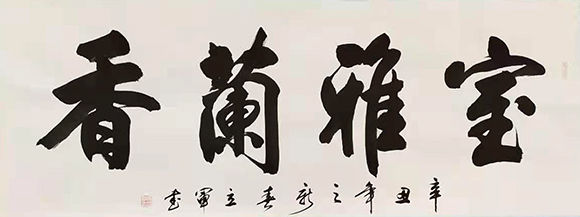 室雅蘭香
辛丑年之新春立軍書